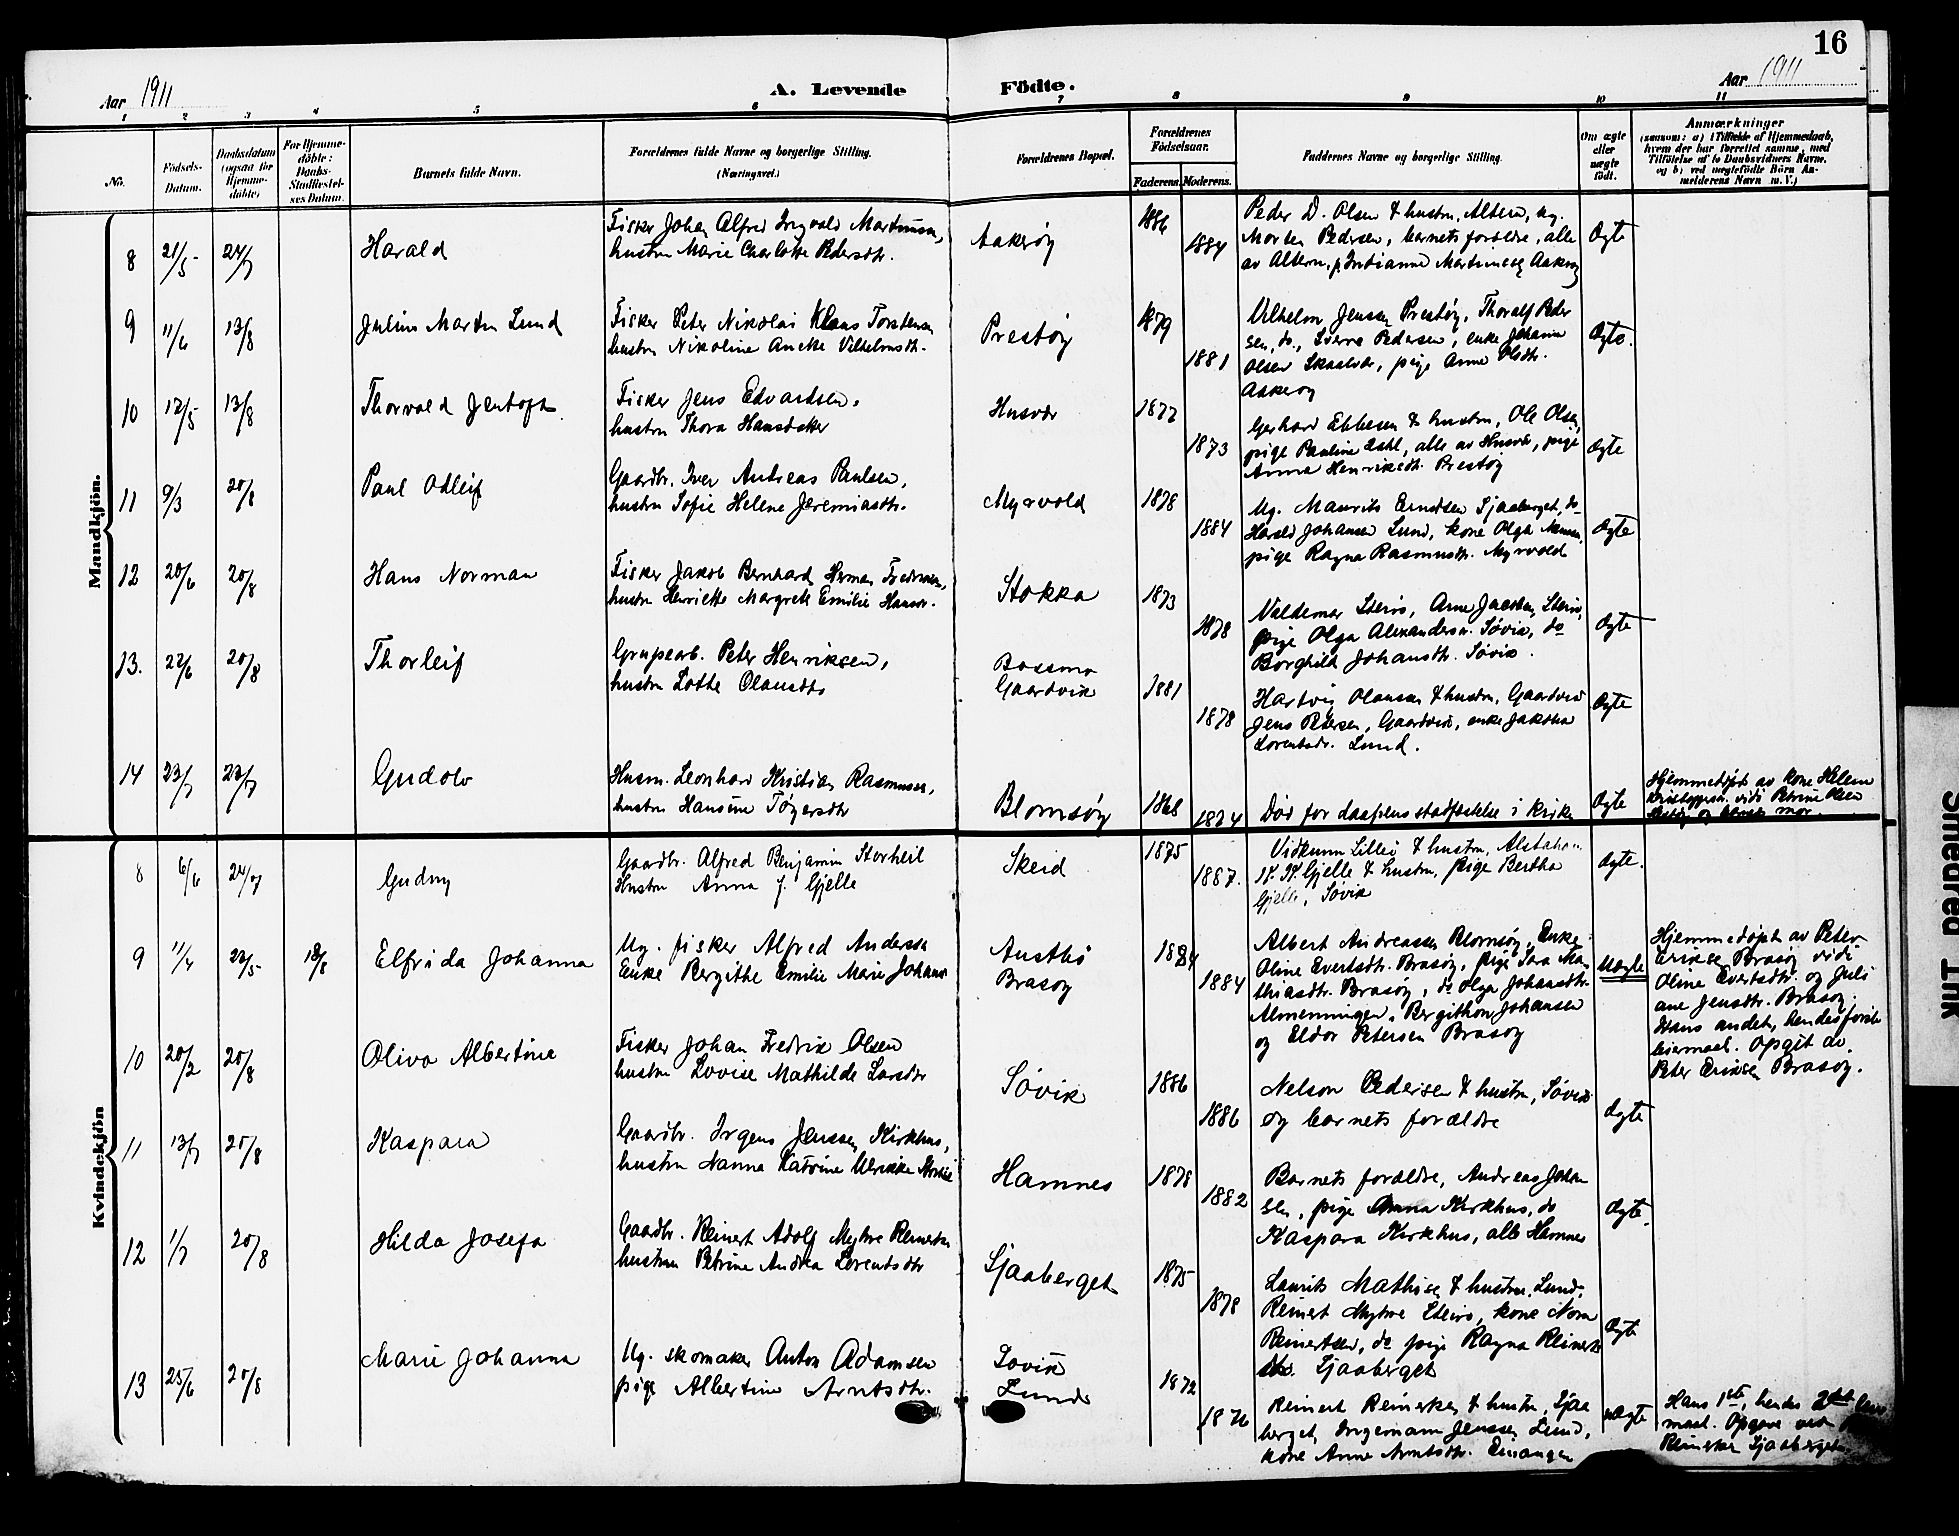 16
Aar 1911
A. Levende Födte.
Aar 1911
1 2 3 4 5 6 7 8 9 10 11
No.
Födsels-
Datum.
Daabsdatum
(ogsaa for
Hjemme-
döbte)
For Hjemme-
döbte:
Daabs-
Stadfæstel-
ses Datum.
Barnets fulde Navn.
Forældrenes fulde Navne og borgerlige Stilling.
(Næringsvei.)
Forældrenes Bopæl.
Forældrenes
Födselsaar.
Faderens. Moderens.
Faddernes Navne og borgerlige Stilling.
Om ægte
eller
uægte
födt.
Anmærkninger
(saasom: a) i Tilfælde af Hjemmedaab,
hvem der har forrettet samme, med
Tilföielse af to Daabsvidners Navne,
og b) ved uægtefödte Börn An-
melderens Navn m. V.)
Mandkjön.
8 21/5 24/7 Harald
Fisker Johan Alfred Ingvald Martinusen,
hustru Marie Charlotte Pedersdtr.
Aakerøy 1886 1884
Peder D. Olsen & hustru, Altern, ug.
Morten Pedersen, barnets forældre, alle
av Altern, Aakerøy
Ægte
9 11/6 13/8 Julius Martin Lund
Fisker Peter Nikolai Klaus Torstensen
hustru Nikoline Vilhelmsdtr.
Prestøy 1879 1881
Vilhelm Jensen Prestøy, Thoralf Peder
sen, do., Pedersen, enke Johanna
Olsen pige Anne Olsdtr.
Askerøy
Ægte.
10 12/5 13/8 Thorvald Jentoft
Fisker Jens Edvardsen,
hustru Thora Hansdatter
Husvær 1877 1873
Gerhard Ebbesen & hustru, Ole Olsen,
pige Pauline Dahl, alle av Husvær, pige
Anna Henriksdtr. Prestøy
Ægte
11 9/3 20/8 Paul Odleif
Gaardbr. Iver Andreas Paulsen,
hustru Sofie Helene Jeremiasdtr.
Myrvold 1878 1884
Ug. Maurits Sjaaberget, do
Harald Johansen Lund, kone Olga
pige Ragna Rasmusdtr. Myrvold
Ægte
12 20/6 20/8 Hans Norman
Fisker Jakob Bernhard Herman Fredriksen,
hustru Henriette Margrete Emilie Hansdr.
Stokka 1873 1878
Valdemar Arne Jacobsen,
pige Olga Alexandersen Søvik, do
Borghild Johansdtr. Søvik.
Ægte
13. 22/6 20/8 Thorleif
Grupearb. Peter Henriksen,
hustru Lotte Olausdtr
Bossmo
Gaardvik 1881 1878
Hartvig Olausen & hustru, Gaardvik
Jens Petersen, Gaardvik, enke Jakobea
Lorentsdr. Lund.
Ægte
14 23/7 23/7 Gudolv
Husm. Leonhard Kristian Rasmussen,
hustru Hansine Tøgersdtr
Blomsøy 1868 1874
Død før daapens stadfestelse i kirke
Ægte
Hjemmedøpt av kone Helene
vidi Petrine Olsen
og mor.
Kvindekjön
8 6/6 24/7 Gudny
Gaardbr. Alfred Benjamin Storheil
Hustru Anna J. Gjelle
Skeid 1875 1887.
Vidkunn Lillei & hustru, Alstahaug
K. K. Gjelle & hustru, pige Bertha
Gjelle, Søvik
Ægte.
9 11/4 23/5 13/8 Elfrida Johanna
Ug. fisker Alfred Andersen
Enke Bergithe Emilie Marie Johans
Austbø
Brasøy 1884 1884
Albert Andreassen Blomsøy, Enke
Oline Evertsdtr. Brasøy, pige Sara Ma-
thiasdtr. Brasøy, do Olga Johansdtr.
Almenningen, Bergithon Johansen
og Eldor Petersen Brasøy
Uægte
Hjemmedøpt av Peter
Eriksen Brasøy vidi
Oline Evertsdtr. og Juli
ane Jensdtr. Brasøy.
Hans andet, hendes første
leiermaal. Opgit av
Peter Eriksen Brasøy.
10 20/2 20/8 Oliva Albertine
Fisker Johan Fredrik Olsen
hustru Lovise Mathilde Larsdtr
Søvik 1886 1886
Nelson Pedersen & hustru, Søvik
og barnets forældre
Ægte
11 13/7 20/8 Kaspara
Gaardbr. Irgens Jenssen Kirkhus,
hustru Nanna Katrine Ulrikke
Hamnes 1878 1882
Barnets forældre, Andreas Johan
sen, pige Anna Kirkhus, do
Kaspara Kirkhus, alle Hamnes
Ægte.
12 1/7 20/8 Hilda Josefa
Gaardbr. Reinert Adolf Myhre Reinertsen
hustru Petrine Andrea Lorentsdtr
Sjaaberget 1875 1878
Laurits Mathisen & hustru, Lund,
Reinert Myhre kone Nora
Reinertsen, do pige Ragna Reinerts
dtr. Sjaaberget
Ægte
13 25/6 20/8 Marie Johanna
Ug. skomaker Anton Adamsen
pige Albertine Arntsdtr.
Søvik
Lund 1872 1876
Reinert Reinertsen & hustru, Sjaa
berget, Ingemann Jenssen Lund,
kone Anne Arntsdtr. Einangen
uÆgte
Hans 1ste, hendes 2det leier
maal. Opgave ved
Reinertsen Sjaaberget